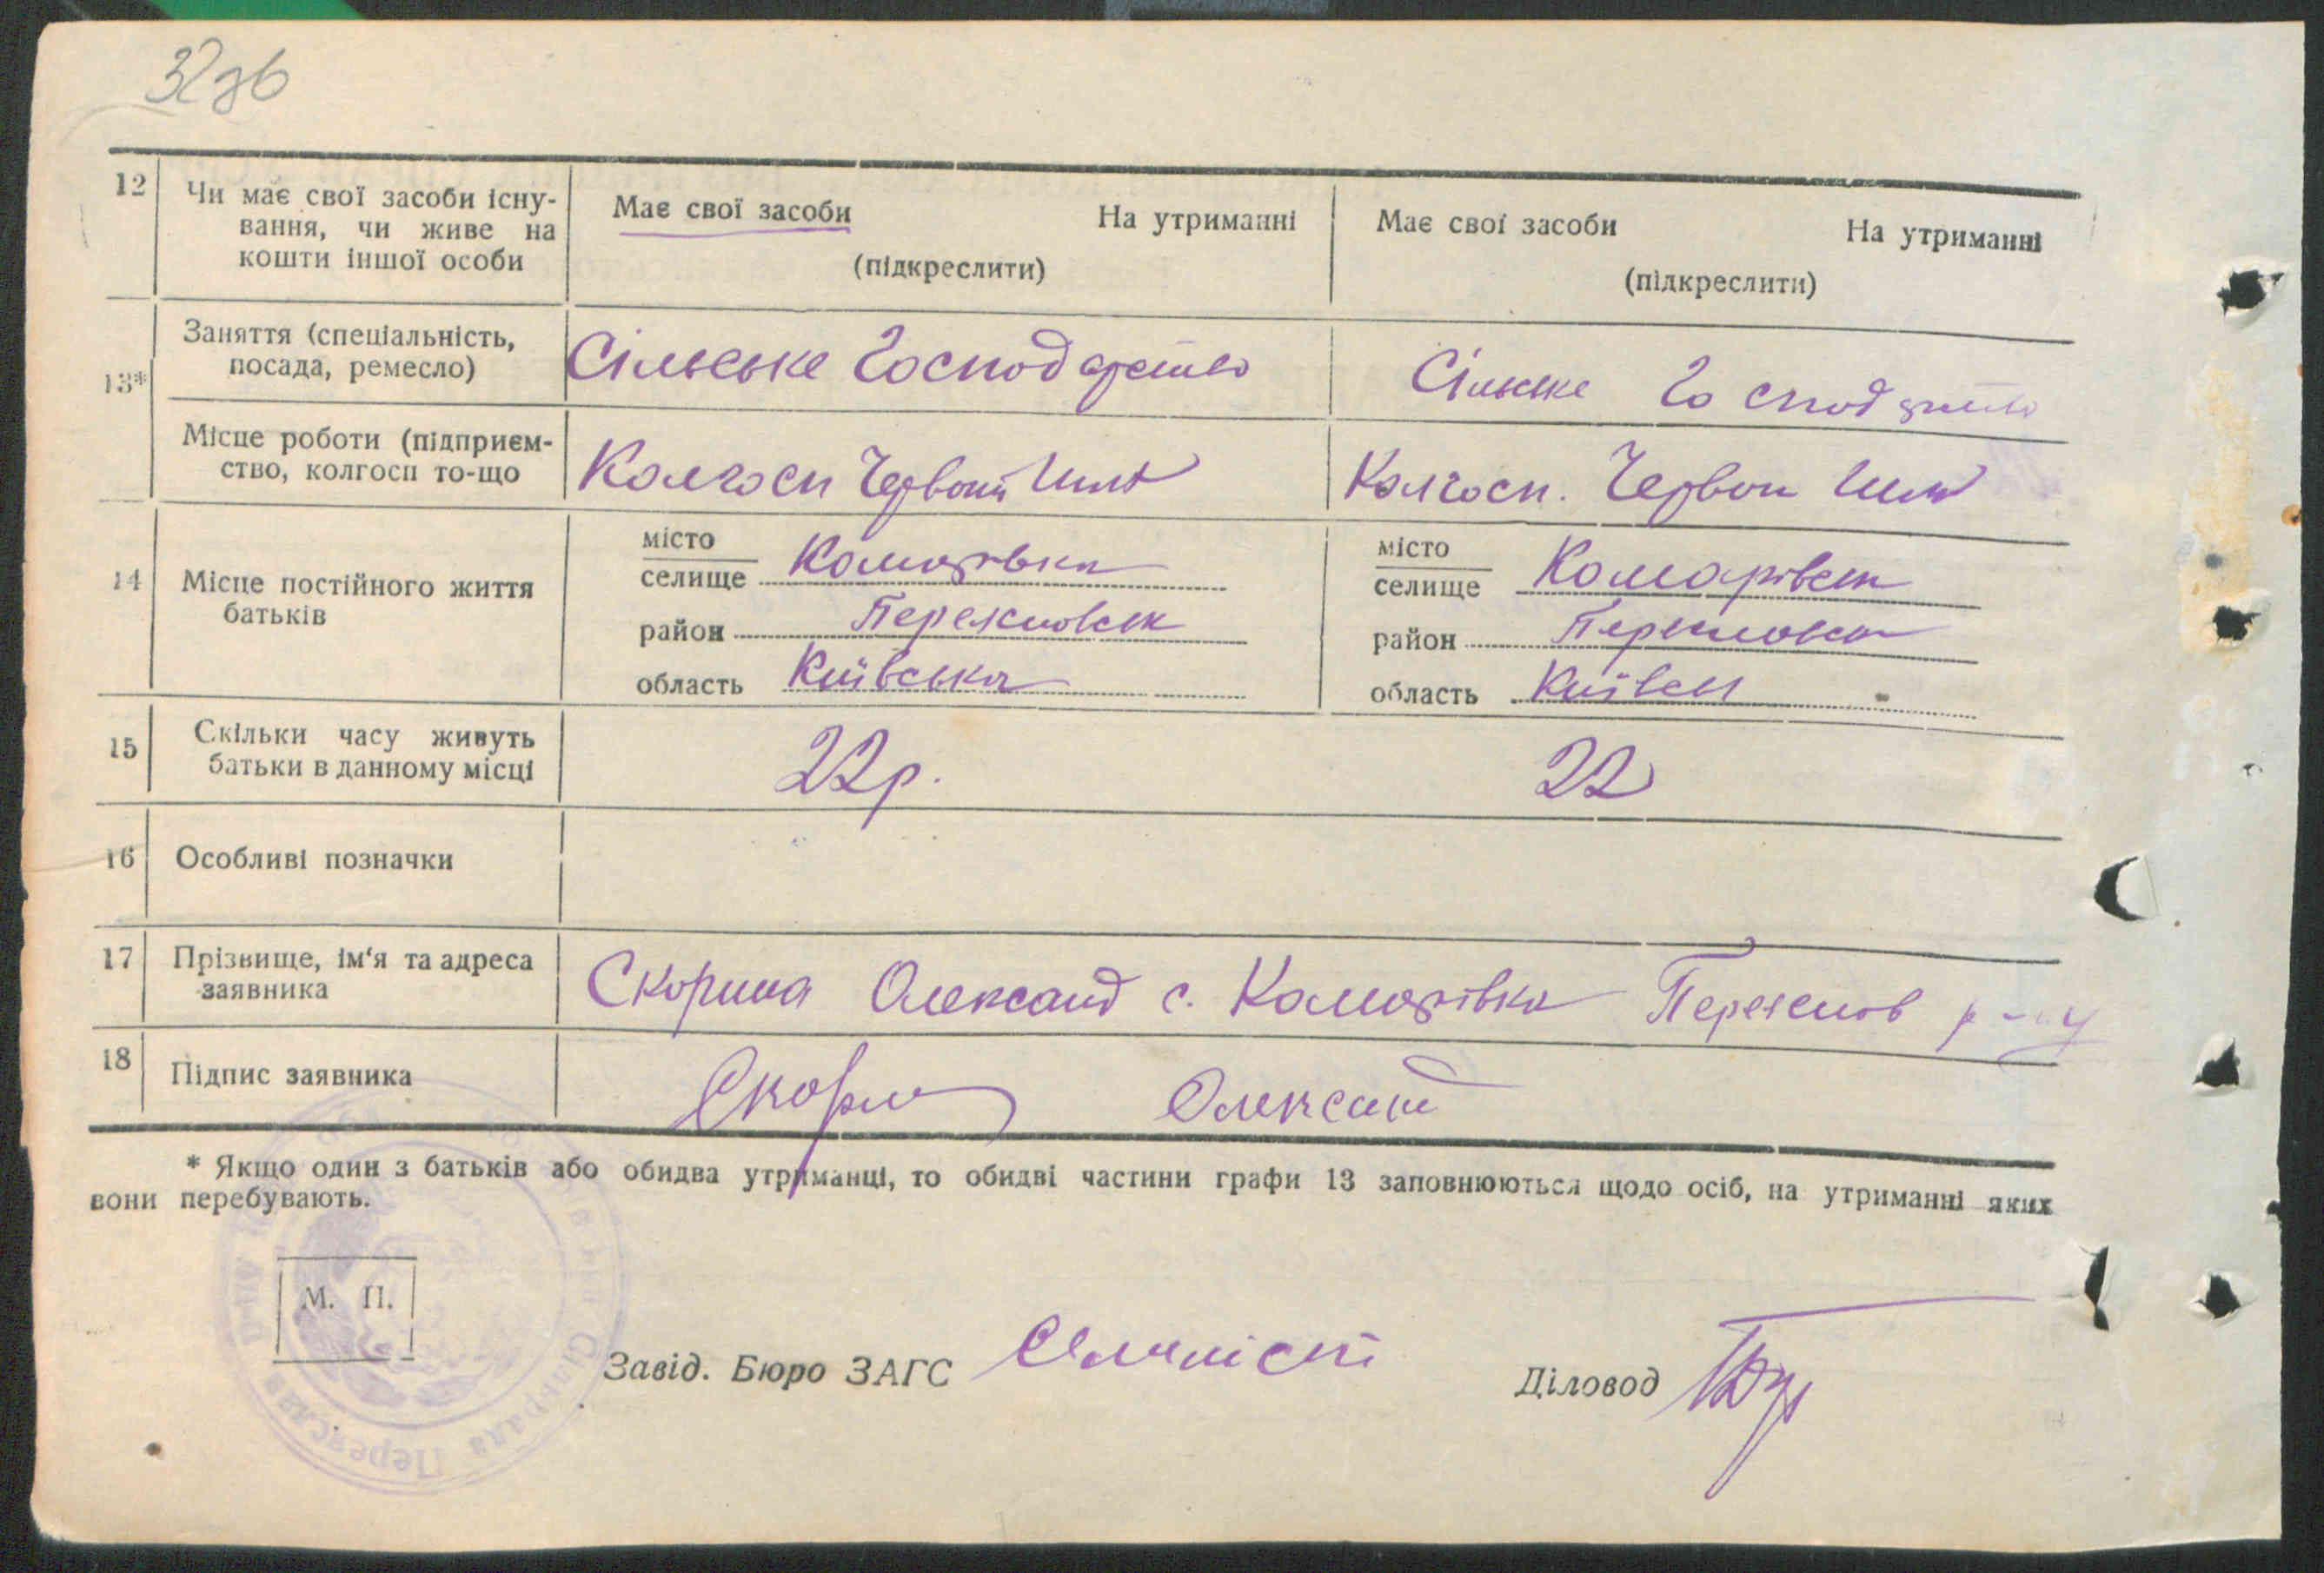 32зв
12 Чи має свої засоби існу-
вання, чи живе на
кошти іншої особи
Має свої засоби На утриманні
(підкреслити)
Має свої засоби На утриманні
(підкреслити)
13*
Заняття (спеціальність,
посада, ремесло)
Сільське Господарство
Сільське Господарство
Місце роботи (підприєм-
ство, колгосп то-що
Колгосп Червоний Шлях
Колгосп. Червон Шлях
14 Місце постійного життя
батьків
місто
селище Комарівка
район
область Київська
місто
селище Комарівка
район
область Київськ
15 Скільки часу живуть
батьки в данному місці
22р.
22
16 Особливі позначки
17 Прізвище, ім'я та адреса
заявника
Скорина Олександ с. Комарівка Переяслов р-ну
18 Підпис заявника
Олександ
* Якщо один з батьків або обидва утриманці, то обидві частини графи 13 заповнюються щодо осіб, на утриманні яких
вони перебувають.
М. П.
Сільрада Переяслав
Завід. Бюро ЗАГС
Діловод